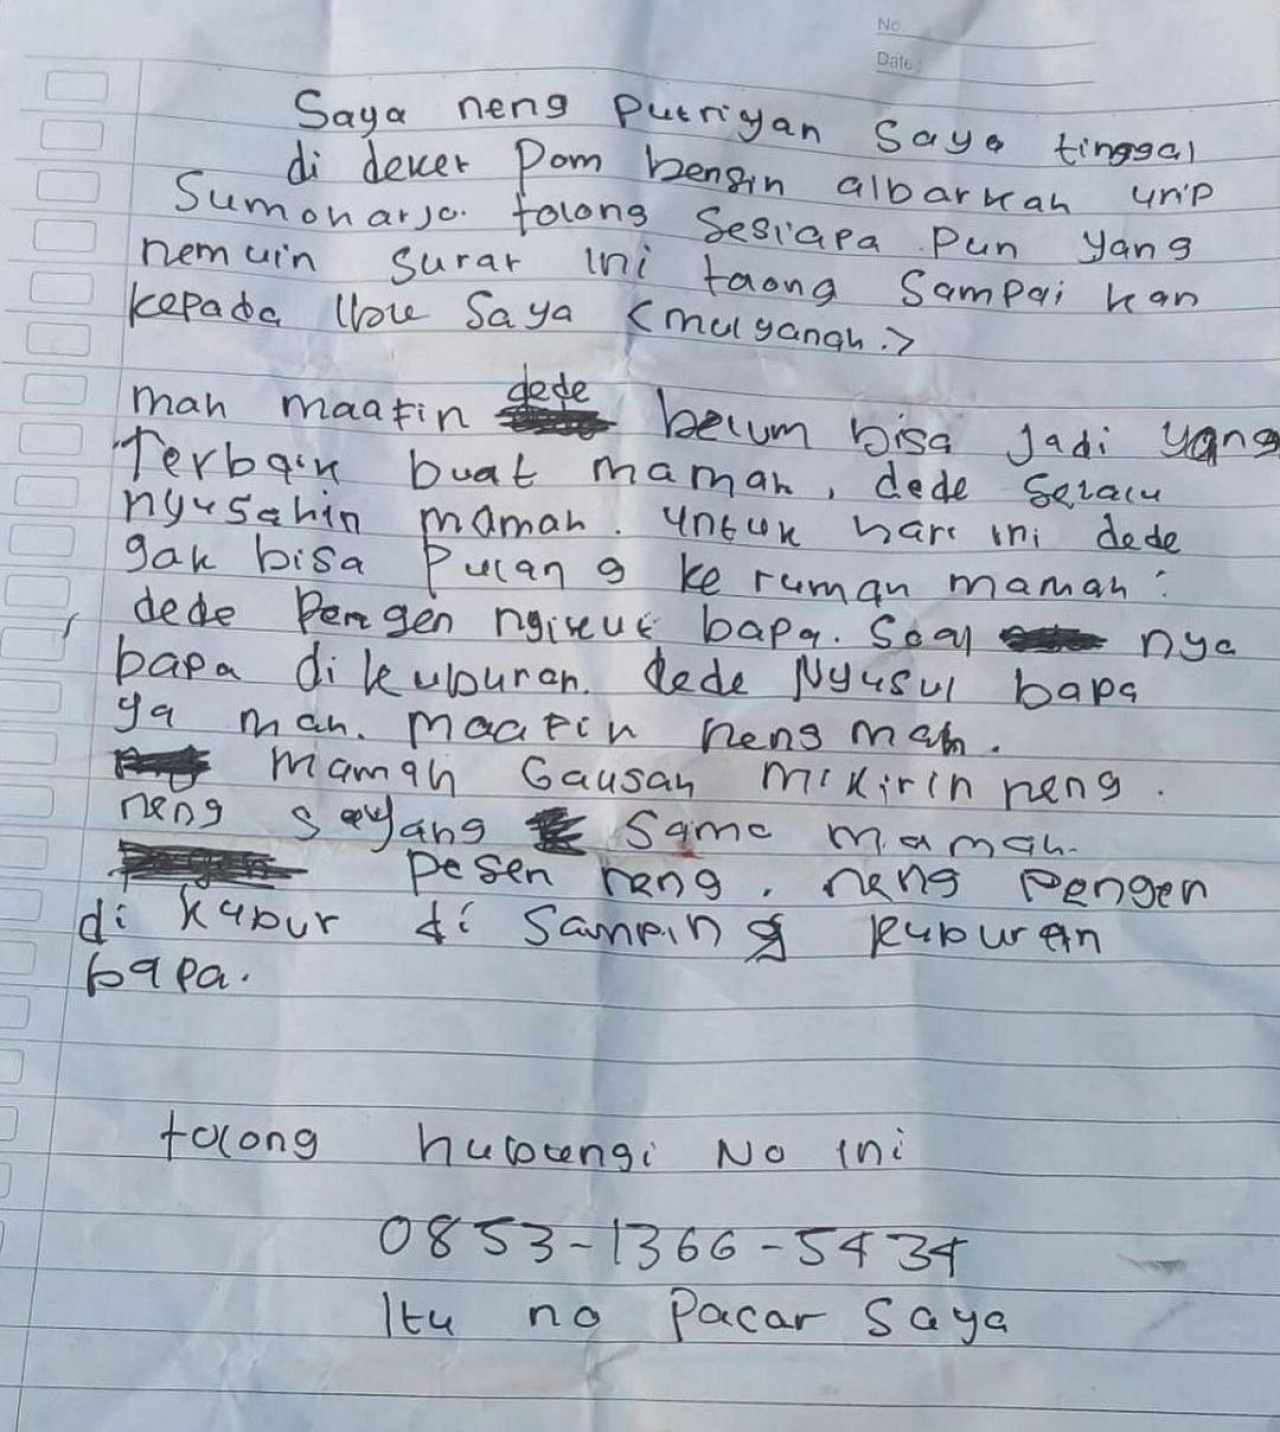 No.
Date:
Saya neng Putriyan Saya tinggal
di deket Pom bensin albarkah urip
Sumoharjo. tolong Sesiapa Pun yang
nemuin surat ini taong Sampai kan
kepada Ibu Saya <mulyanah.>
mah maafin dede belum bisa Jadi yang
Terbaik buat mamah, dede Selalu
nyusahin mamah. untuk hari ini dede
gak bisa Pulang ke rumah mamah.
dede Pengen ngikut bapa. Soal nya
bapa di kuburan. dede Nyusul bapa
ya mah. maafin neng mah.
mamah Gausah mikirin neng.
neng sayang Sama mamah.
Pesen neng. neng Pengen
di kubur di Samping kuburan
bapa.
tolong hubungi No ini
0853-1366-5434
Itu no Pacar Saya